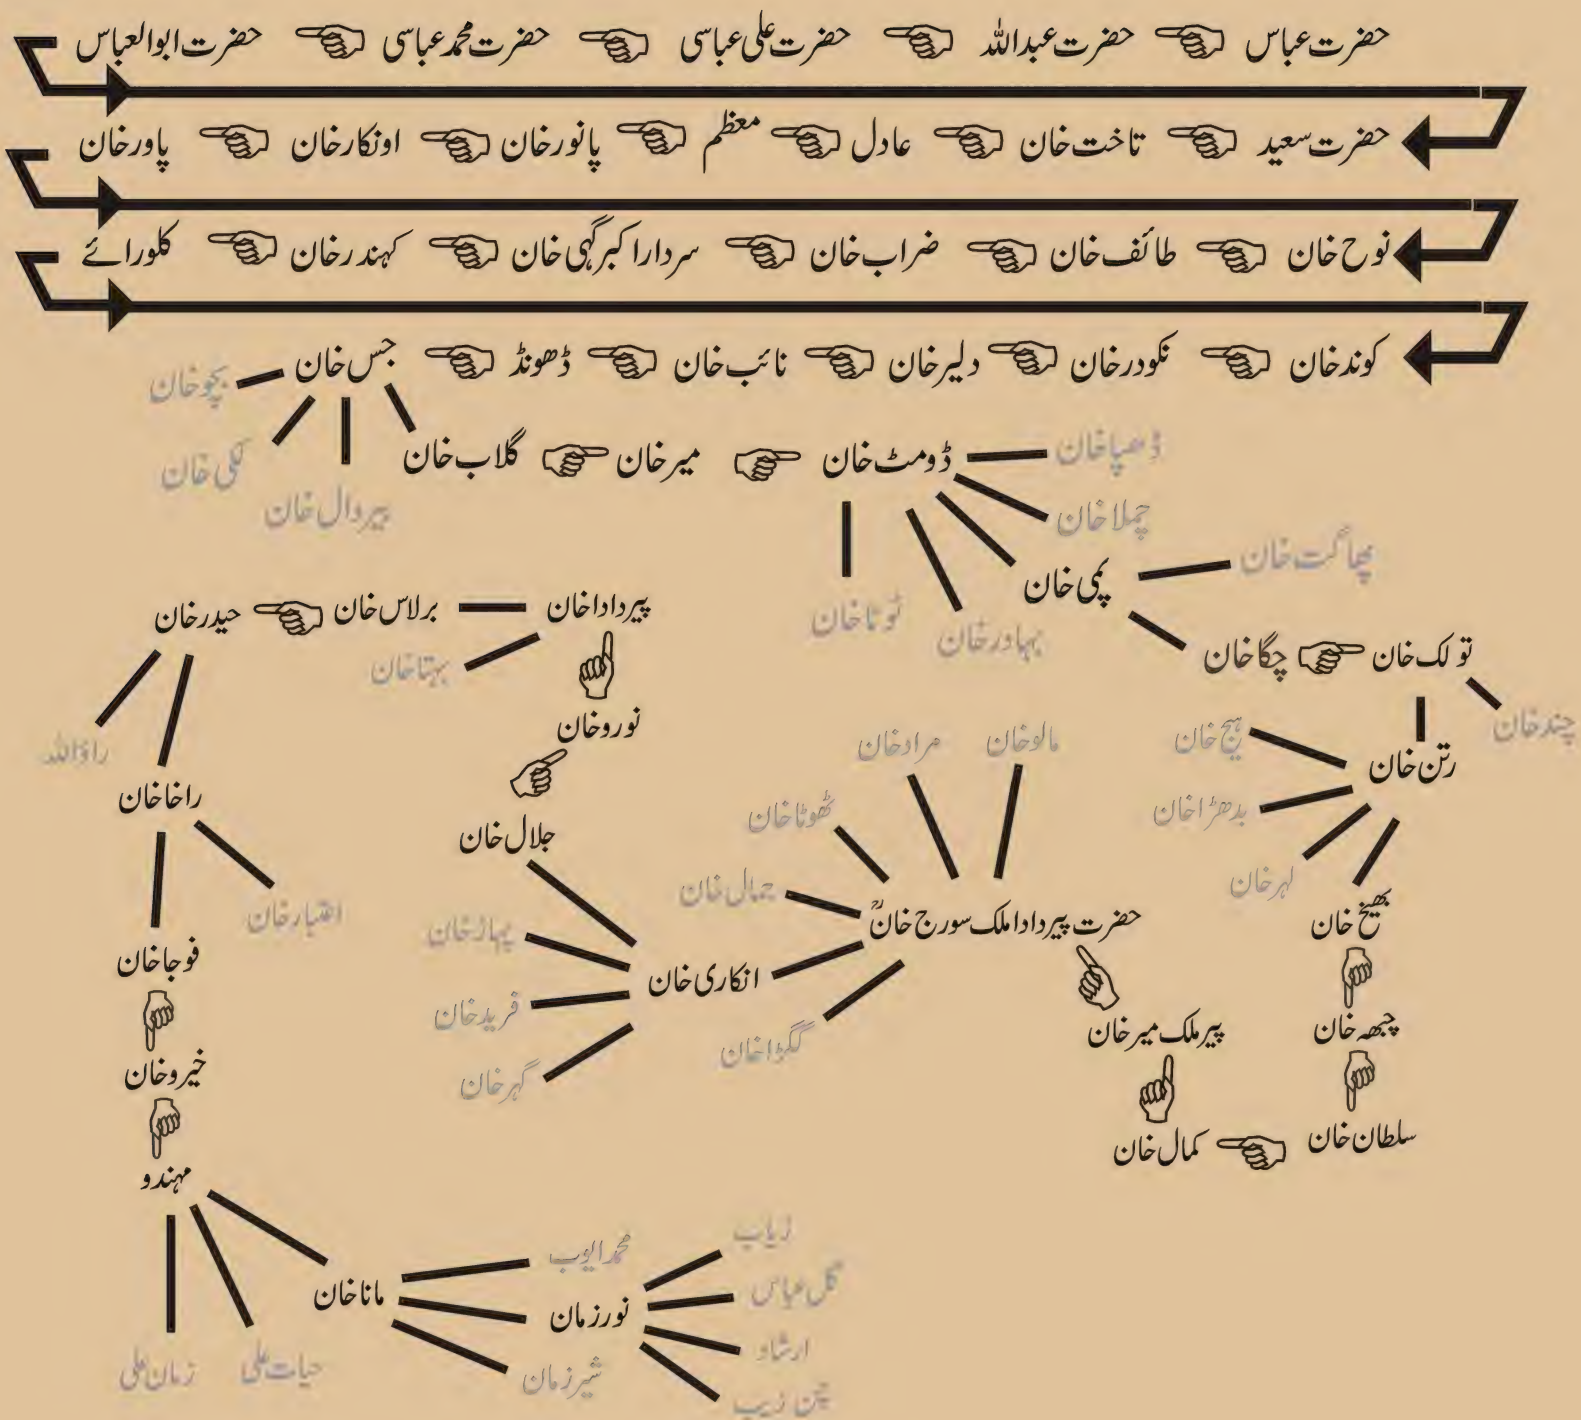 حضرت عباس حضرت عبداللہ حضرت علی عباسی حضرت محمد عباسی حضرت ابوالعباس
حضرت سعید تاخت خان عادل معظم پانور خان اونکار خان پاور خان
نوح خان طائف خان ضراب خان سردار اکبر گہی خان کہندر خان کلورائے
کوند خان نکودر خان دلیر خان نائب خان ڈھونڈ جس خان
بچو خان
لکی خان
پیر دال خان
گلاب خان میر خان ڈومٹ خان
ڈھپا خان
جملا خان
پمی خان
بہادر خان
ٹوٹا خان
چھاگت خان
چگا خان تولک خان
چند خان
رتن خان
ہیج خان
بدھڑا خان
لہر خان
بھیخ خان
چبھہ خان
سلطان خان
کمال خان
پیر ملک میر خان
حضرت پیر دادا ملک سورج خانؒ
مالو خان
مراد خان
ٹھوٹا خان
جمال خان
انکاری خان
گگڑا خان
جلال خان
پہاڑ خان
فرید خان
گہر خان
نورو خان
پیر دادا خان
برلاس خان
بہتا خان
حیدر خان
راؤ اللہ
راخا خان
اعتبار خان
فوجا خان
خیرو خان
مہندو
مانا خان
حیات علی
زمان علی
محمد ایوب
نور زمان
شیر زمان
زیاب
گل عباس
ارشاد
چن زیب